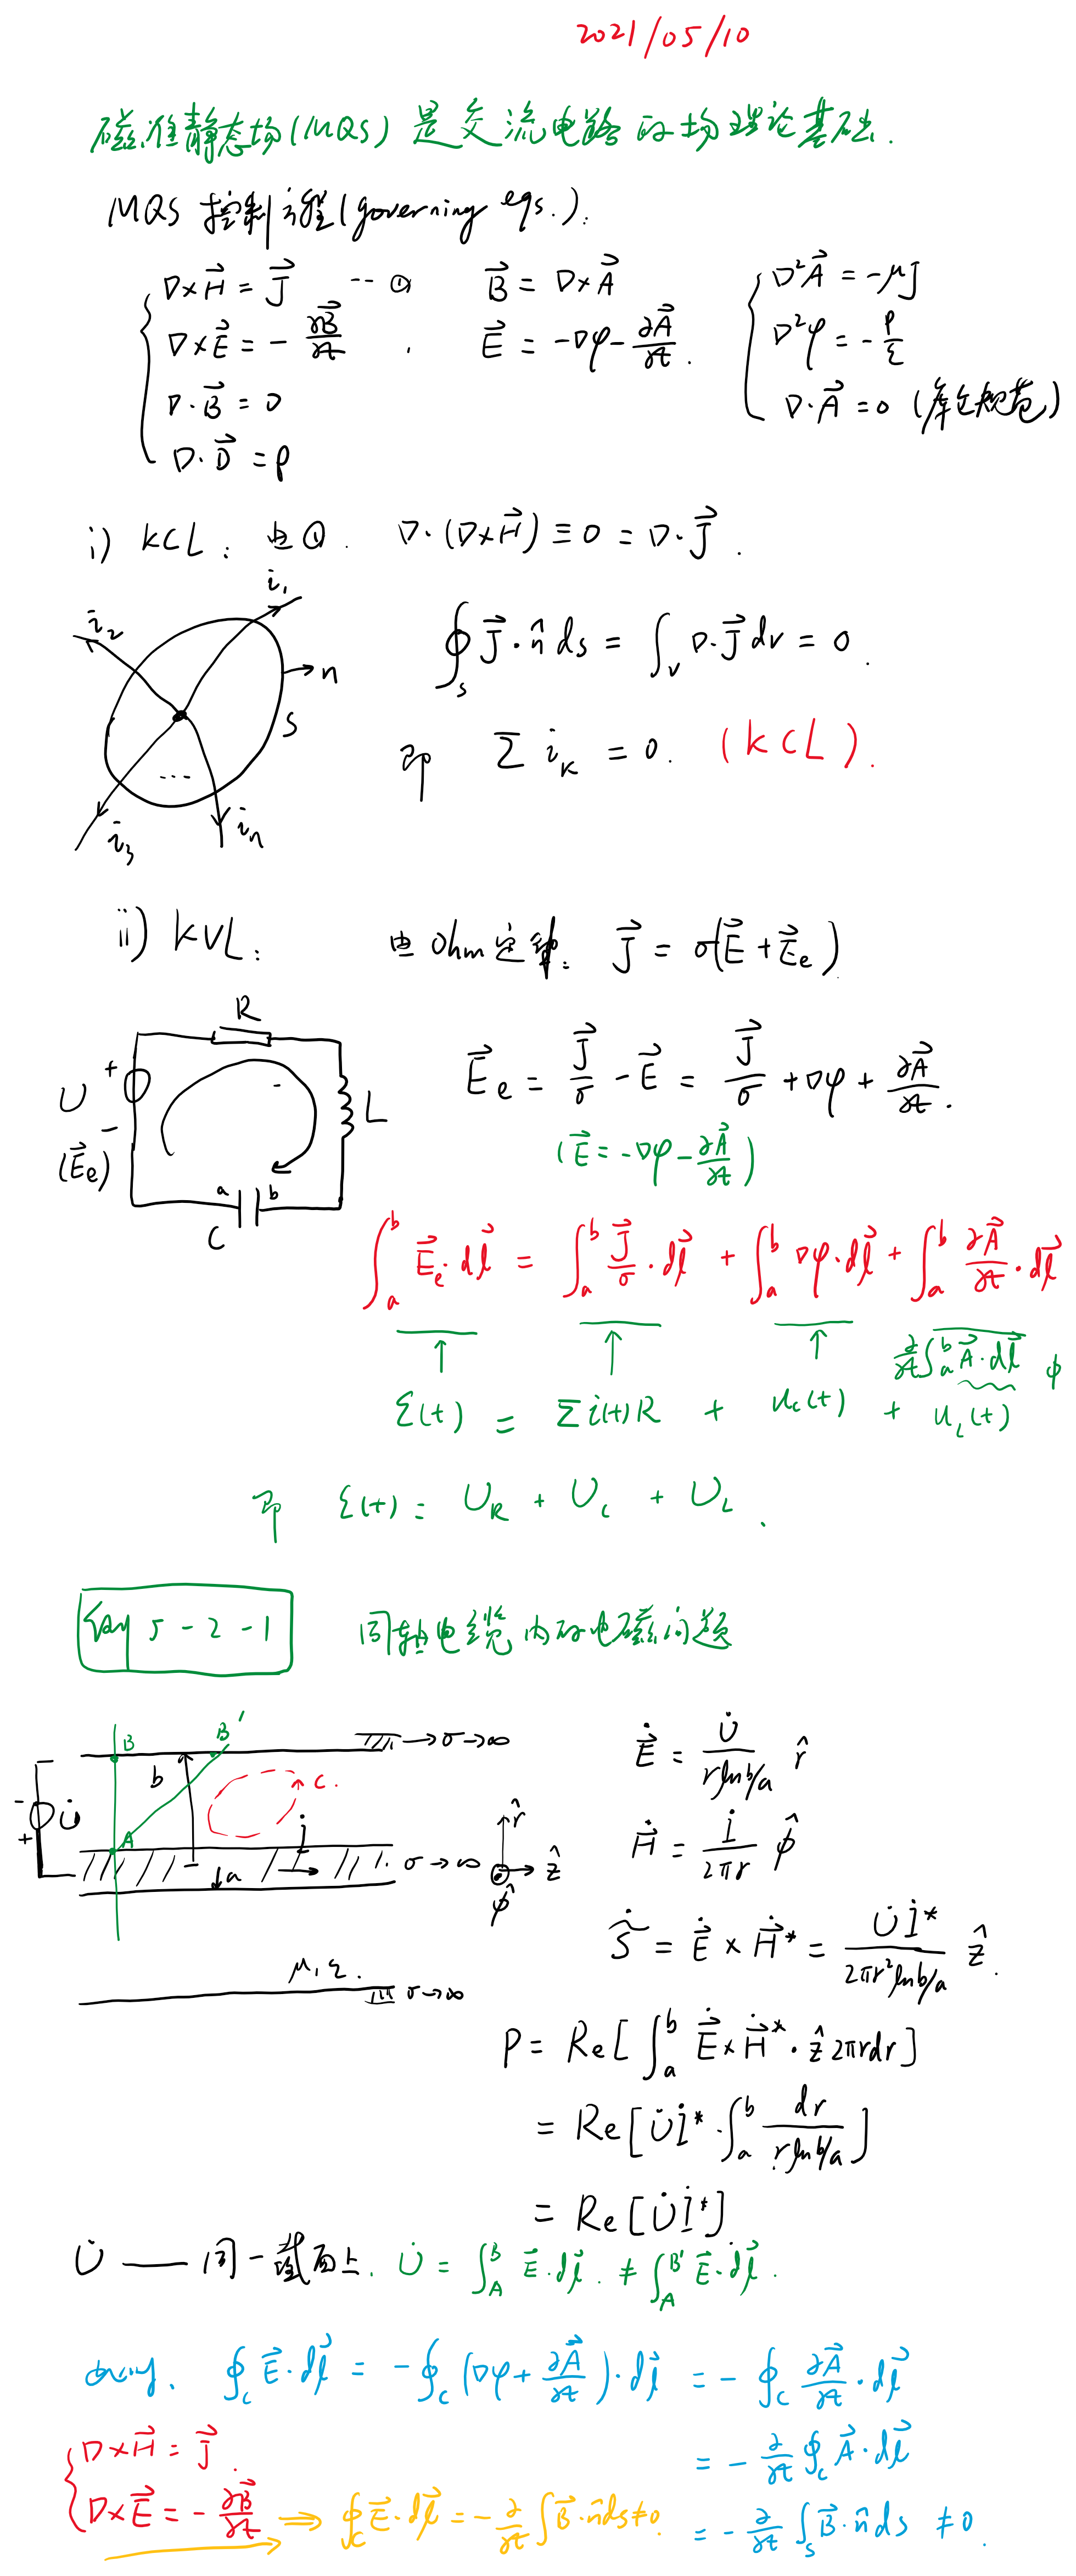 2021/05/10
磁准静态场(MQS)是交流电路的场理论基础.
MQS 控制方程(governing eqs.):
∇×H⃗ = J⃗ ··· ① B⃗ = ∇×A⃗ ∇²A⃗ = -μJ
∇×E⃗ = -∂B⃗/∂t . E⃗ = -∇φ - ∂A⃗/∂t. ∇²φ = -ρ/ε
∇·B⃗ = 0 ∇·A⃗ = 0 (库仑规范)
∇·D⃗ = ρ
i) KCL: 由①. ∇·(∇×H⃗) ≡ 0 = ∇·J⃗.
i₁
i₂
n
S
...
i₃
iₙ
∮_S J⃗·n̂ ds = ∫_V ∇·J⃗ dv = 0.
即 Σ i_K = 0. (KCL).
ii) KVL: 由Ohm定律: J⃗ = σ(E⃗ + E⃗e)
R
U + -
(E⃗e)
L
a b
C
E⃗e = J⃗/σ - E⃗ = J⃗/σ + ∇φ + ∂A⃗/∂t.
(E⃗ = -∇φ - ∂A⃗/∂t)
∫_a^b E⃗e·dl⃗ = ∫_a^b J⃗/σ·dl⃗ + ∫_a^b ∇φ·dl⃗ + ∫_a^b ∂A⃗/∂t·dl⃗
↑ ↑ ↑ ∂/∂t∫_a^b A⃗·dl⃗ φ
ε(t) = Σi(t)R + u_c(t) + u_L(t)
即 ε(t) = U_R + U_C + U_L.
5-2-1 同轴电缆内的电磁问题
B B′ → σ→∞
b C.
- U̇ +
A İ
a σ→∞
r̂ ẑ φ̂
μ, ε.
σ→∞
Ė⃗ = U̇/(r ln b/a) r̂
Ḣ⃗ = İ/(2πr) φ̂
S̃ = Ė⃗ × Ḣ⃗* = U̇İ*/(2πr² ln b/a) ẑ.
P = Re[∫_a^b Ė⃗×Ḣ⃗*·ẑ 2πrdr]
= Re[U̇İ*·∫_a^b dr/(r ln b/a)]
= Re[U̇İ*]
U̇ —— 同一截面上. U̇ = ∫_A^B E⃗·dl⃗. ≠ ∫_A^B′ E⃗·dl⃗.
∮_C E⃗·dl⃗ = -∮_C (∇φ + ∂A⃗/∂t)·dl⃗ = -∮_C ∂A⃗/∂t·dl⃗
= -∂/∂t ∮_C A⃗·dl⃗
= -∂/∂t ∫_S B⃗·n̂ds ≠ 0.
∇×H⃗ = J⃗.
∇×E⃗ = -∂B⃗/∂t ⇒ ∮_C E⃗·dl⃗ = -∂/∂t ∫B⃗·n̂ds ≠ 0.